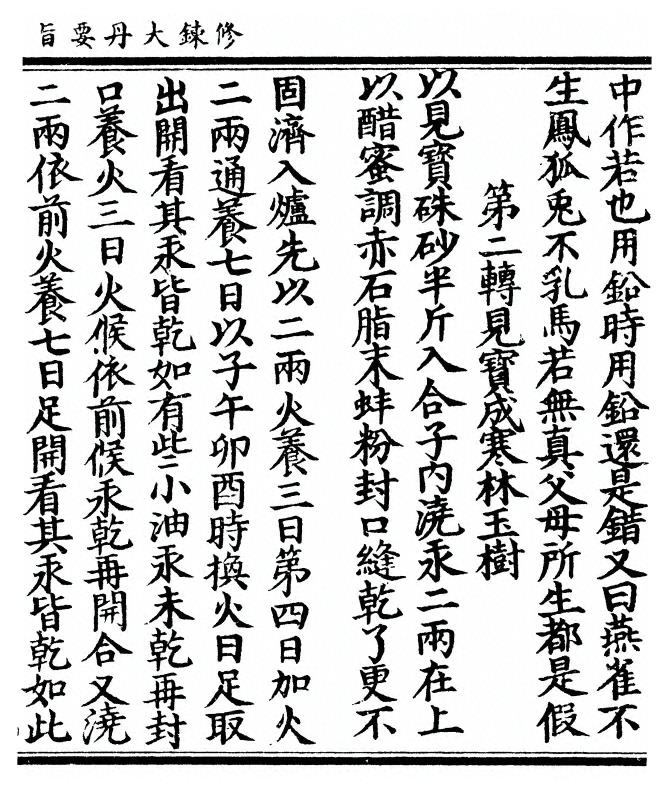 修鍊大丹要旨
中作若也用鉛時用鉛還是錯又曰燕雀不
生鳳狐兎不乳馬若無真父母所生都是假
第二轉見寶成寒林玉樹
以見寶硃砂半斤入合子內澆汞二兩在上
以醋蜜調赤石脂末蚌粉封口縫乾了更不
固濟入爐先以二兩火養三日第四日加火
二兩通養七日以子午卯酉時換火日足取
出開看其汞皆乾如有些小油汞未乾再封
口養火三日火候依前候汞乾再開合又澆
二兩依前火養七日足開看其汞皆乾如此